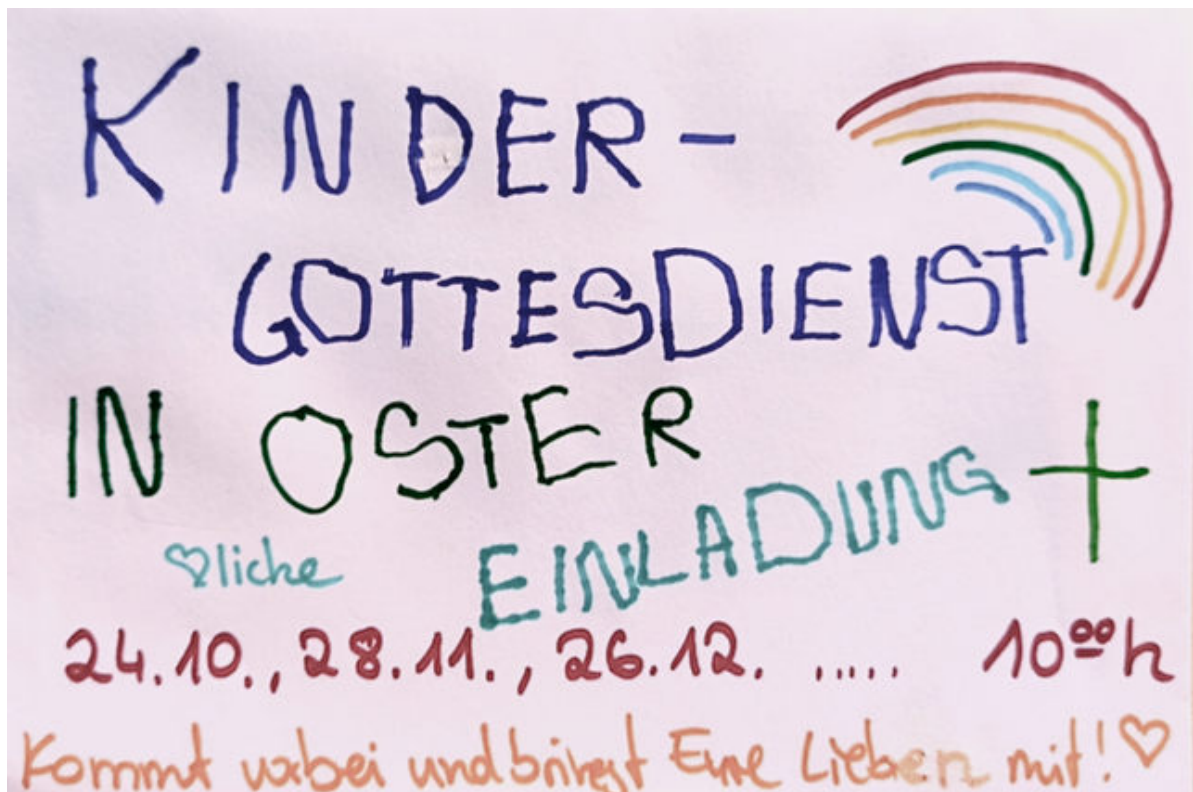 KINDER-
GOTTESDIENST
IN OSTER
♡liche EINLADUNG
24.10., 28.11., 26.12. ..... 10⁰⁰h
Kommt vorbei und bringt Eure Lieben mit! ♡